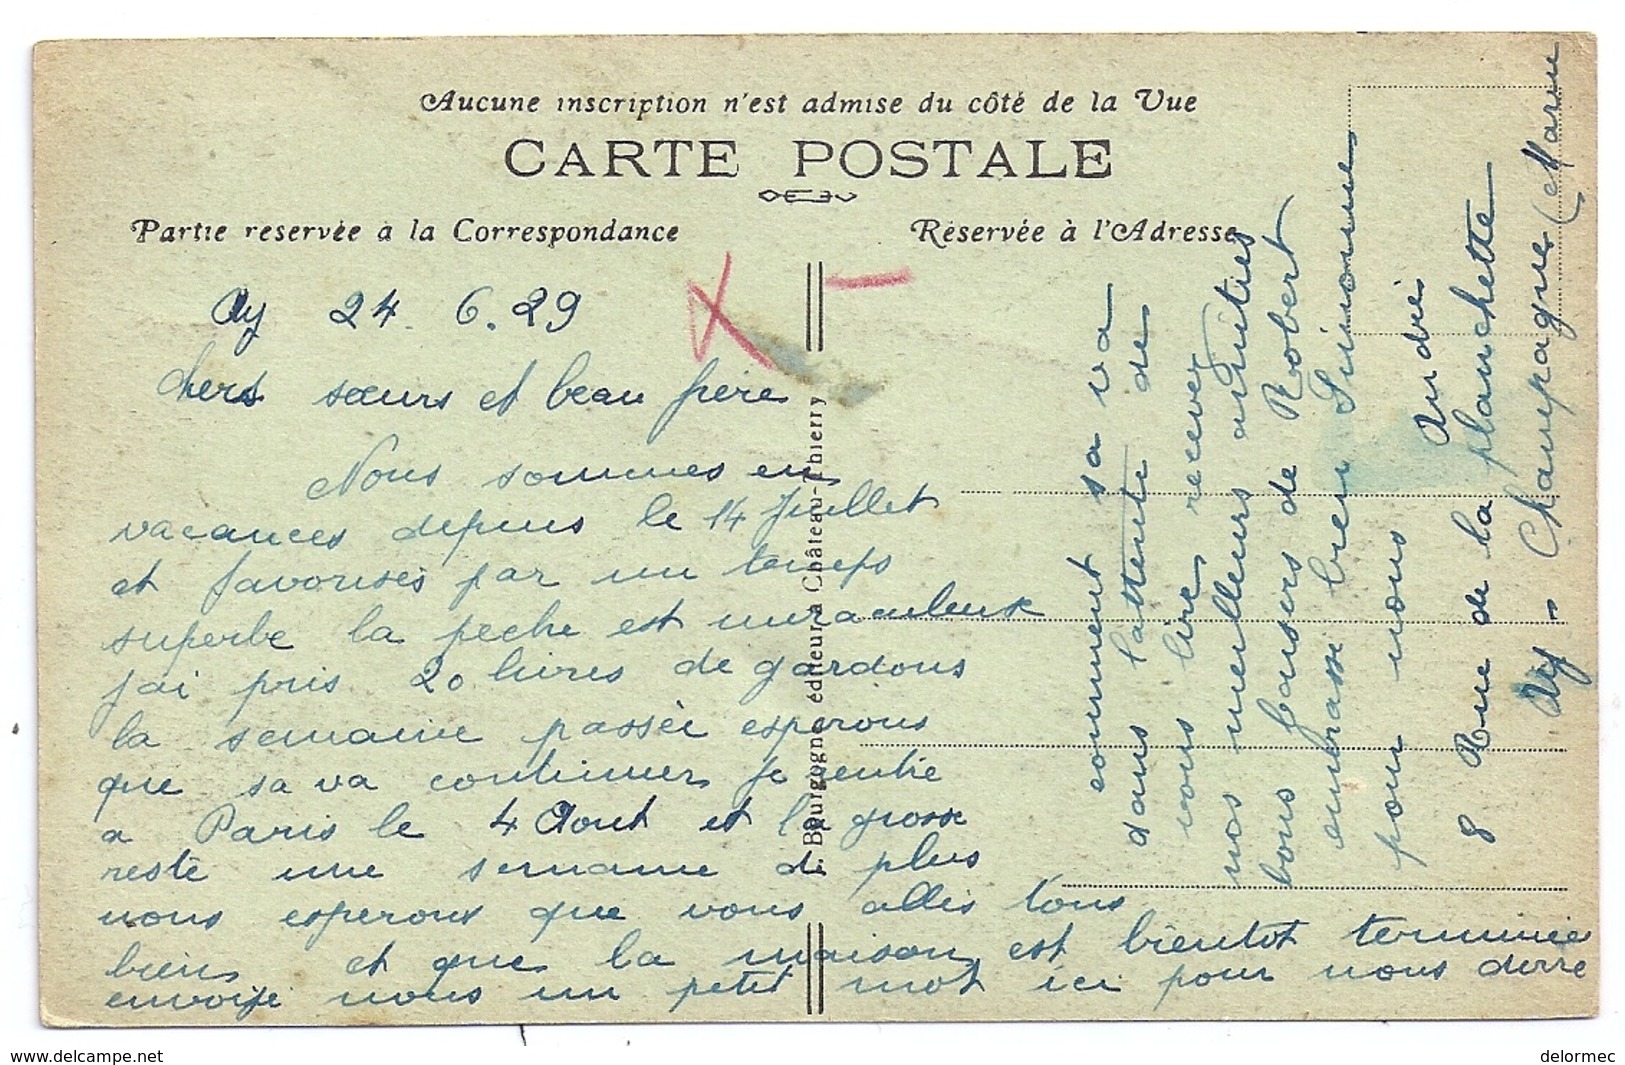 Aucune inscription n'est admise du côté de la Vue
CARTE POSTALE
Partie reservée à la Correspondance
Réservée à l'Adresse
Ay 24. 6. 29
chers sœurs et beau frère
Nous sommes en
vacances depuis le 14 Juillet
et favorisés par un temps
superbe la peche est miraculeuse
jai pris 20 livres de gardons
la semaine passée esperons
que sa va continuer je rentre
a Paris le 4 Aout et la grosse
reste une semaine de plus
nous esperons que vous allés tous
bien et que la maison est bientot terminée
envoyé nous un petit mot ici pour nous dirre
comment sa va
dans lattente de
vous lire recever
nos meilleurs amitiés
bons baisers de Robert
embrasse bien Simonne
pour nous
André
8 Rue de la planchette
Ay - Champagne (Marne
Bourgogne éditeur à Château-Thierry
www.delcampe.net
delormec